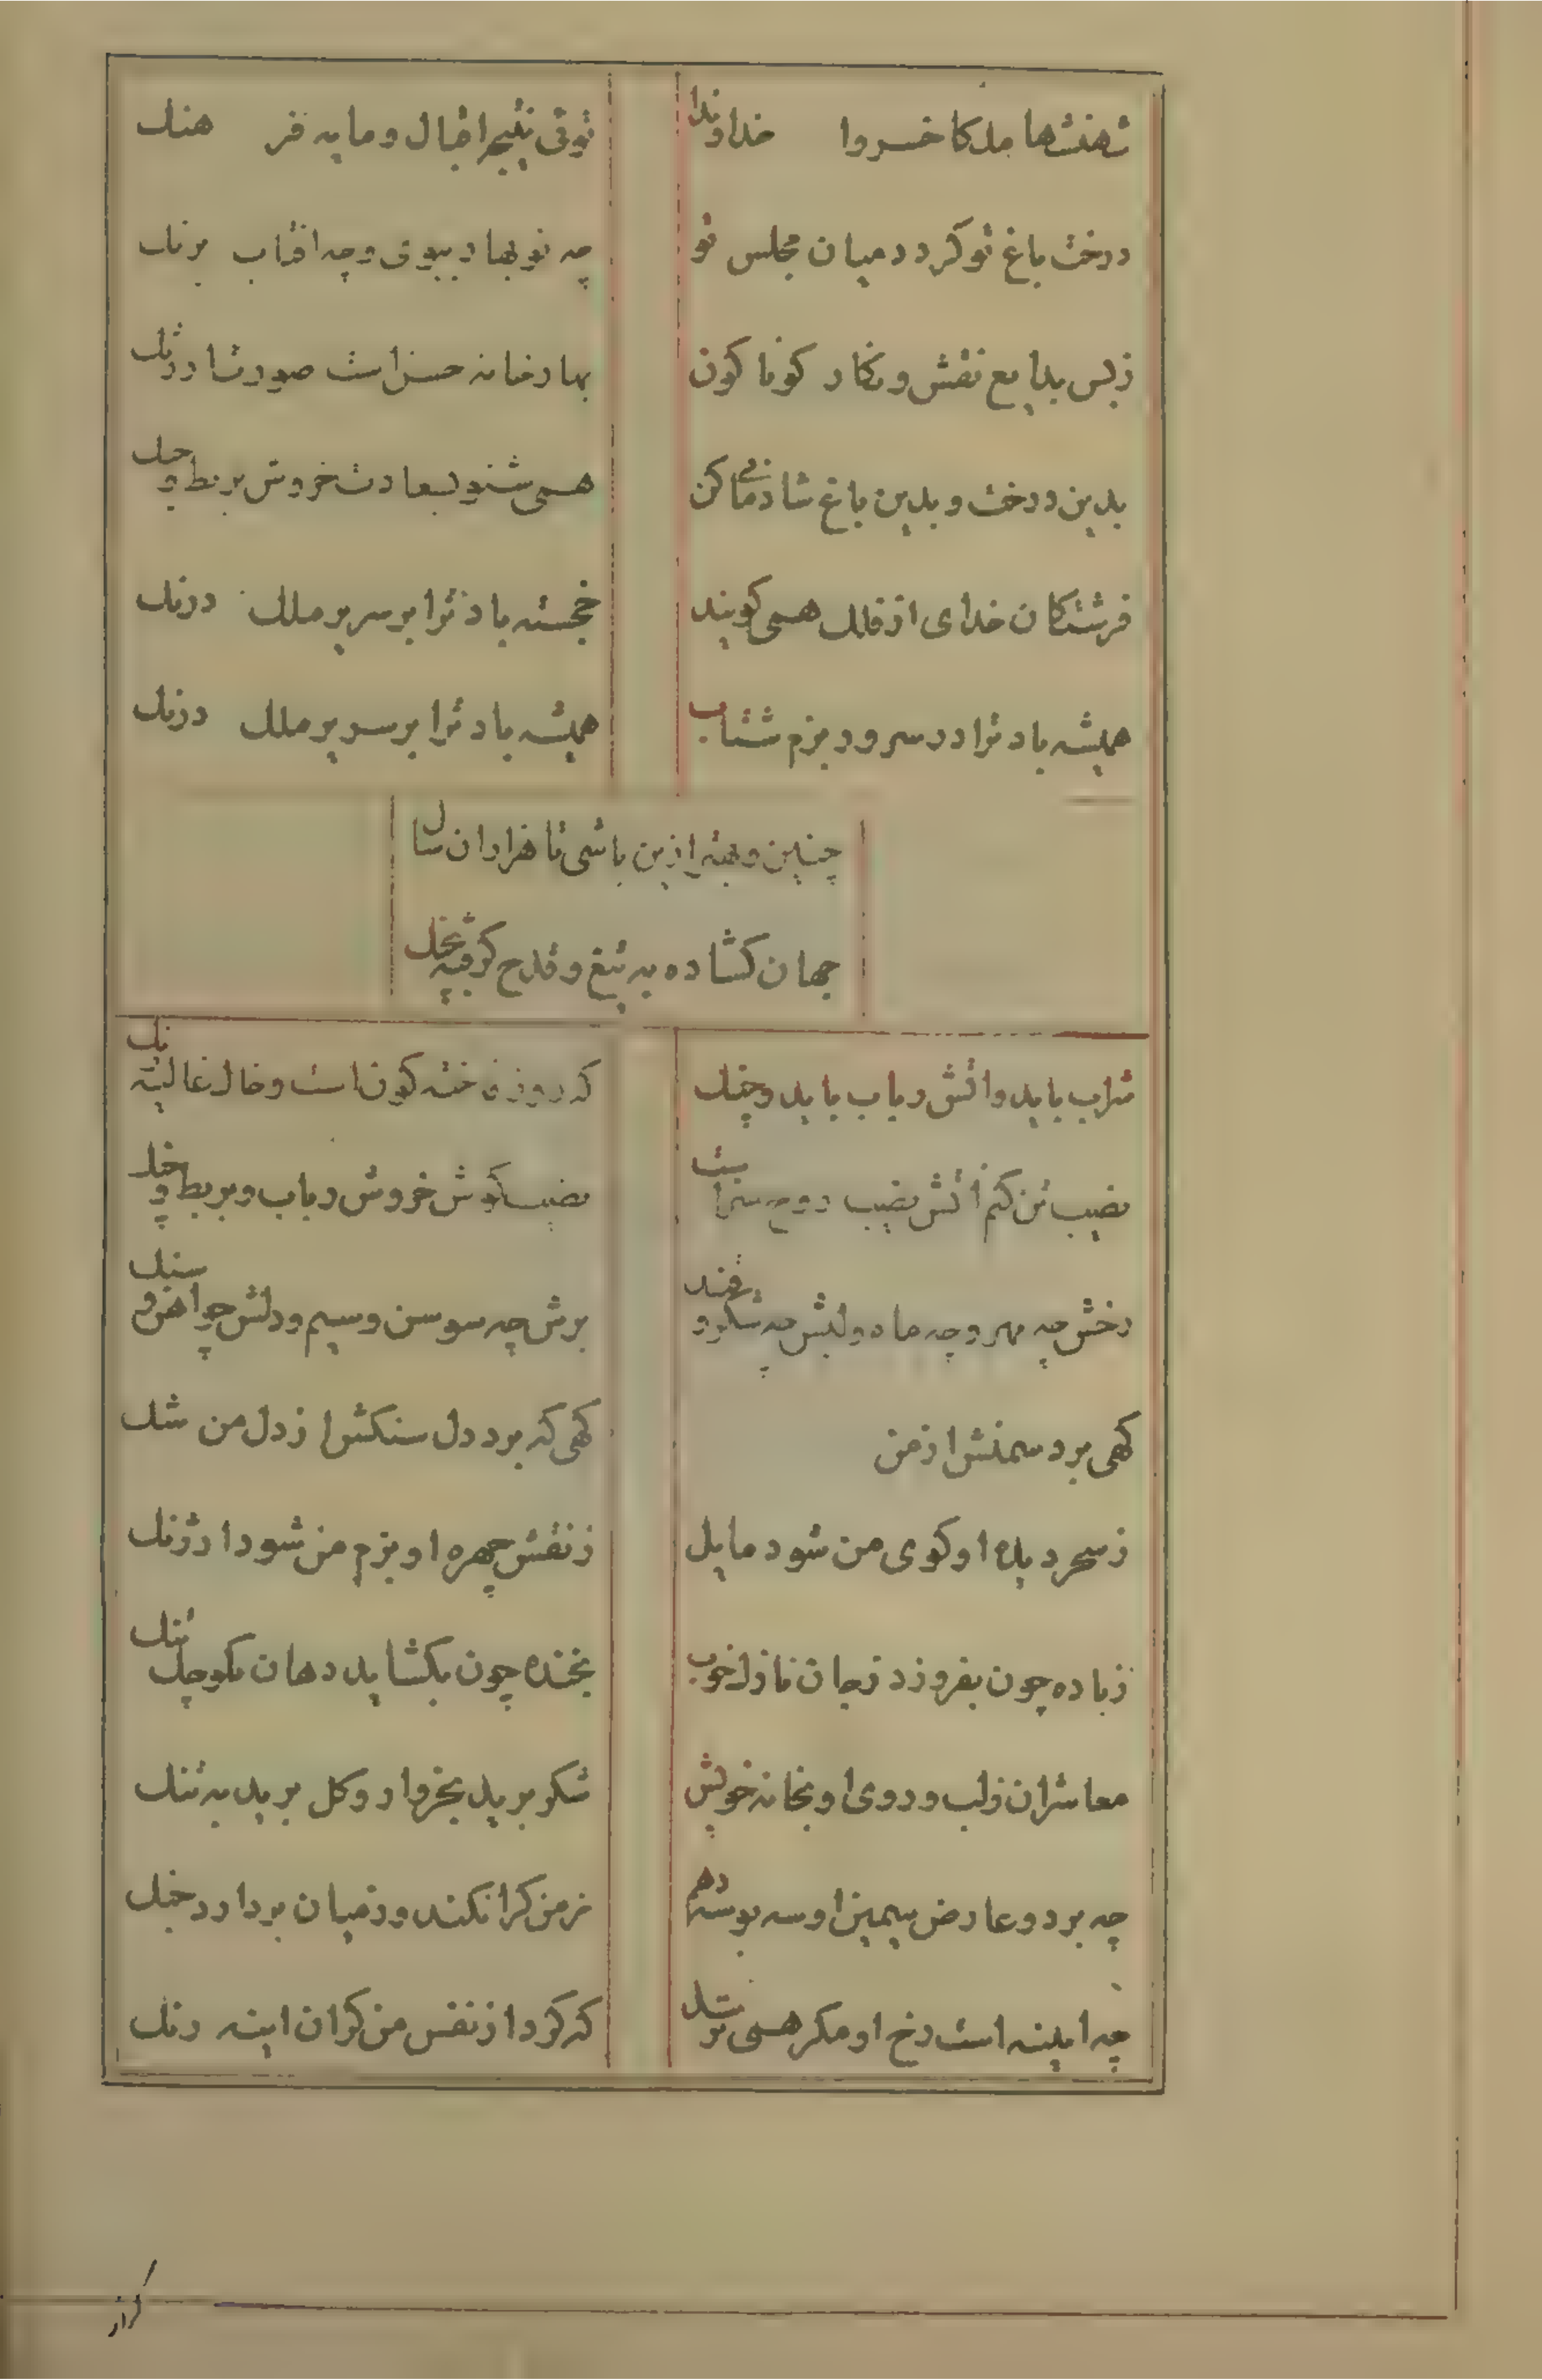 شهنشها ملکا خسروا خداوندا
توئی نتیجه اقبال و مایه فرهنك
درخت باغ تو کرد در میان مجلس تو
چه نوبهار ببوی و چه افتاب برنك
ز بس بدایع نقش و نکار کوناکون
بهارخانه حسن است صورت ارژنك
بدین درخت و بدین باغ شادمانی کن
همی شنو بسعادت خروش بربط و چنك
فرشتکان خدای از فلك همی کویند
خجسته باد ترا بر سریر ملك درنك
همیشه باد ترا در سرود بزم شتاب
همیشه باد ترا بر سریر ملك درنك
چنین و بهتر ازین باشی تا هزاران سال
جهان کشاده به تیغ و قدح کرفته بچنك
شراب باید و اتش رباب باید و چنك
که روز فاخته کون است و خاك غالیه رنك
نصیب تن کنم اتش نصیب روح شراب
نصیب کوش خروش رباب و بربط و چنك
رخش چه مهر و چه ماه و لبش چه شکر و قند
برش چه سوسن و سیم و دلش چو اهن و سنك
کهی برد سمنش از من
کهی که برد دل سنکش از دل من شنك
ز سحر دیده او کوی من شود مایل
ز نقش چهره او بزم من شود ارژنك
ز باده چون بفروزد رخان نازك خوب
بخنده چون بکشاید دهان کوچك تنك
معاشران ز لب و روی او بخانه خویش
شکر برید بخروار و کل برید به تنك
چه بر دو عارض سیمین او سه بوسه دهم
ز من کرانکند و ز میان بردارد جنك
چه اینه است رخ او مکر همی ترسد
که کرد از نفس من کران اینه رنك
کراز